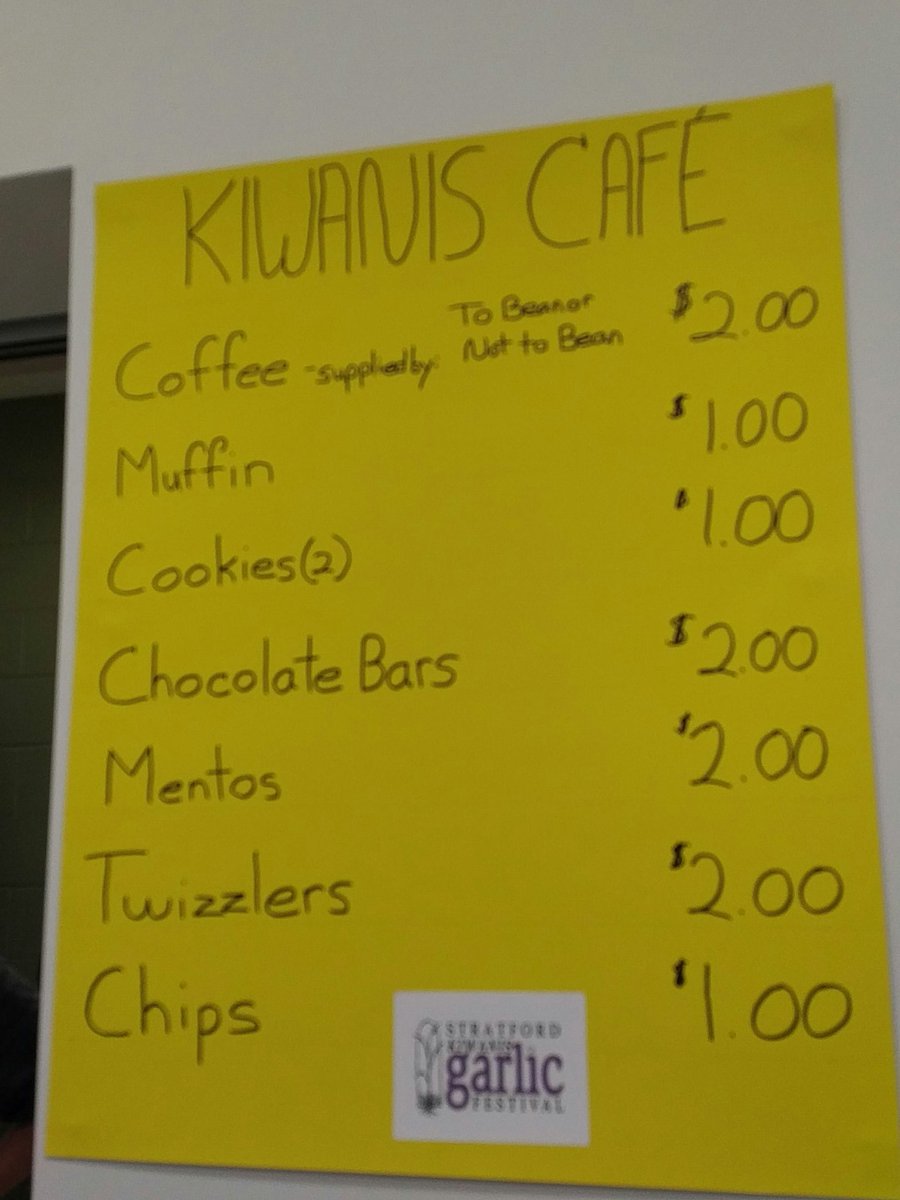 KIWANIS CAFÉ
Coffee -supplied by: To Bean or $2.00
Not to Bean
Muffin $1.00
Cookies(2) $1.00
Chocolate Bars $2.00
Mentos $2.00
Twizzlers $2.00
Chips $1.00
STRATFORD
KIWANIS
garlic
FESTIVAL